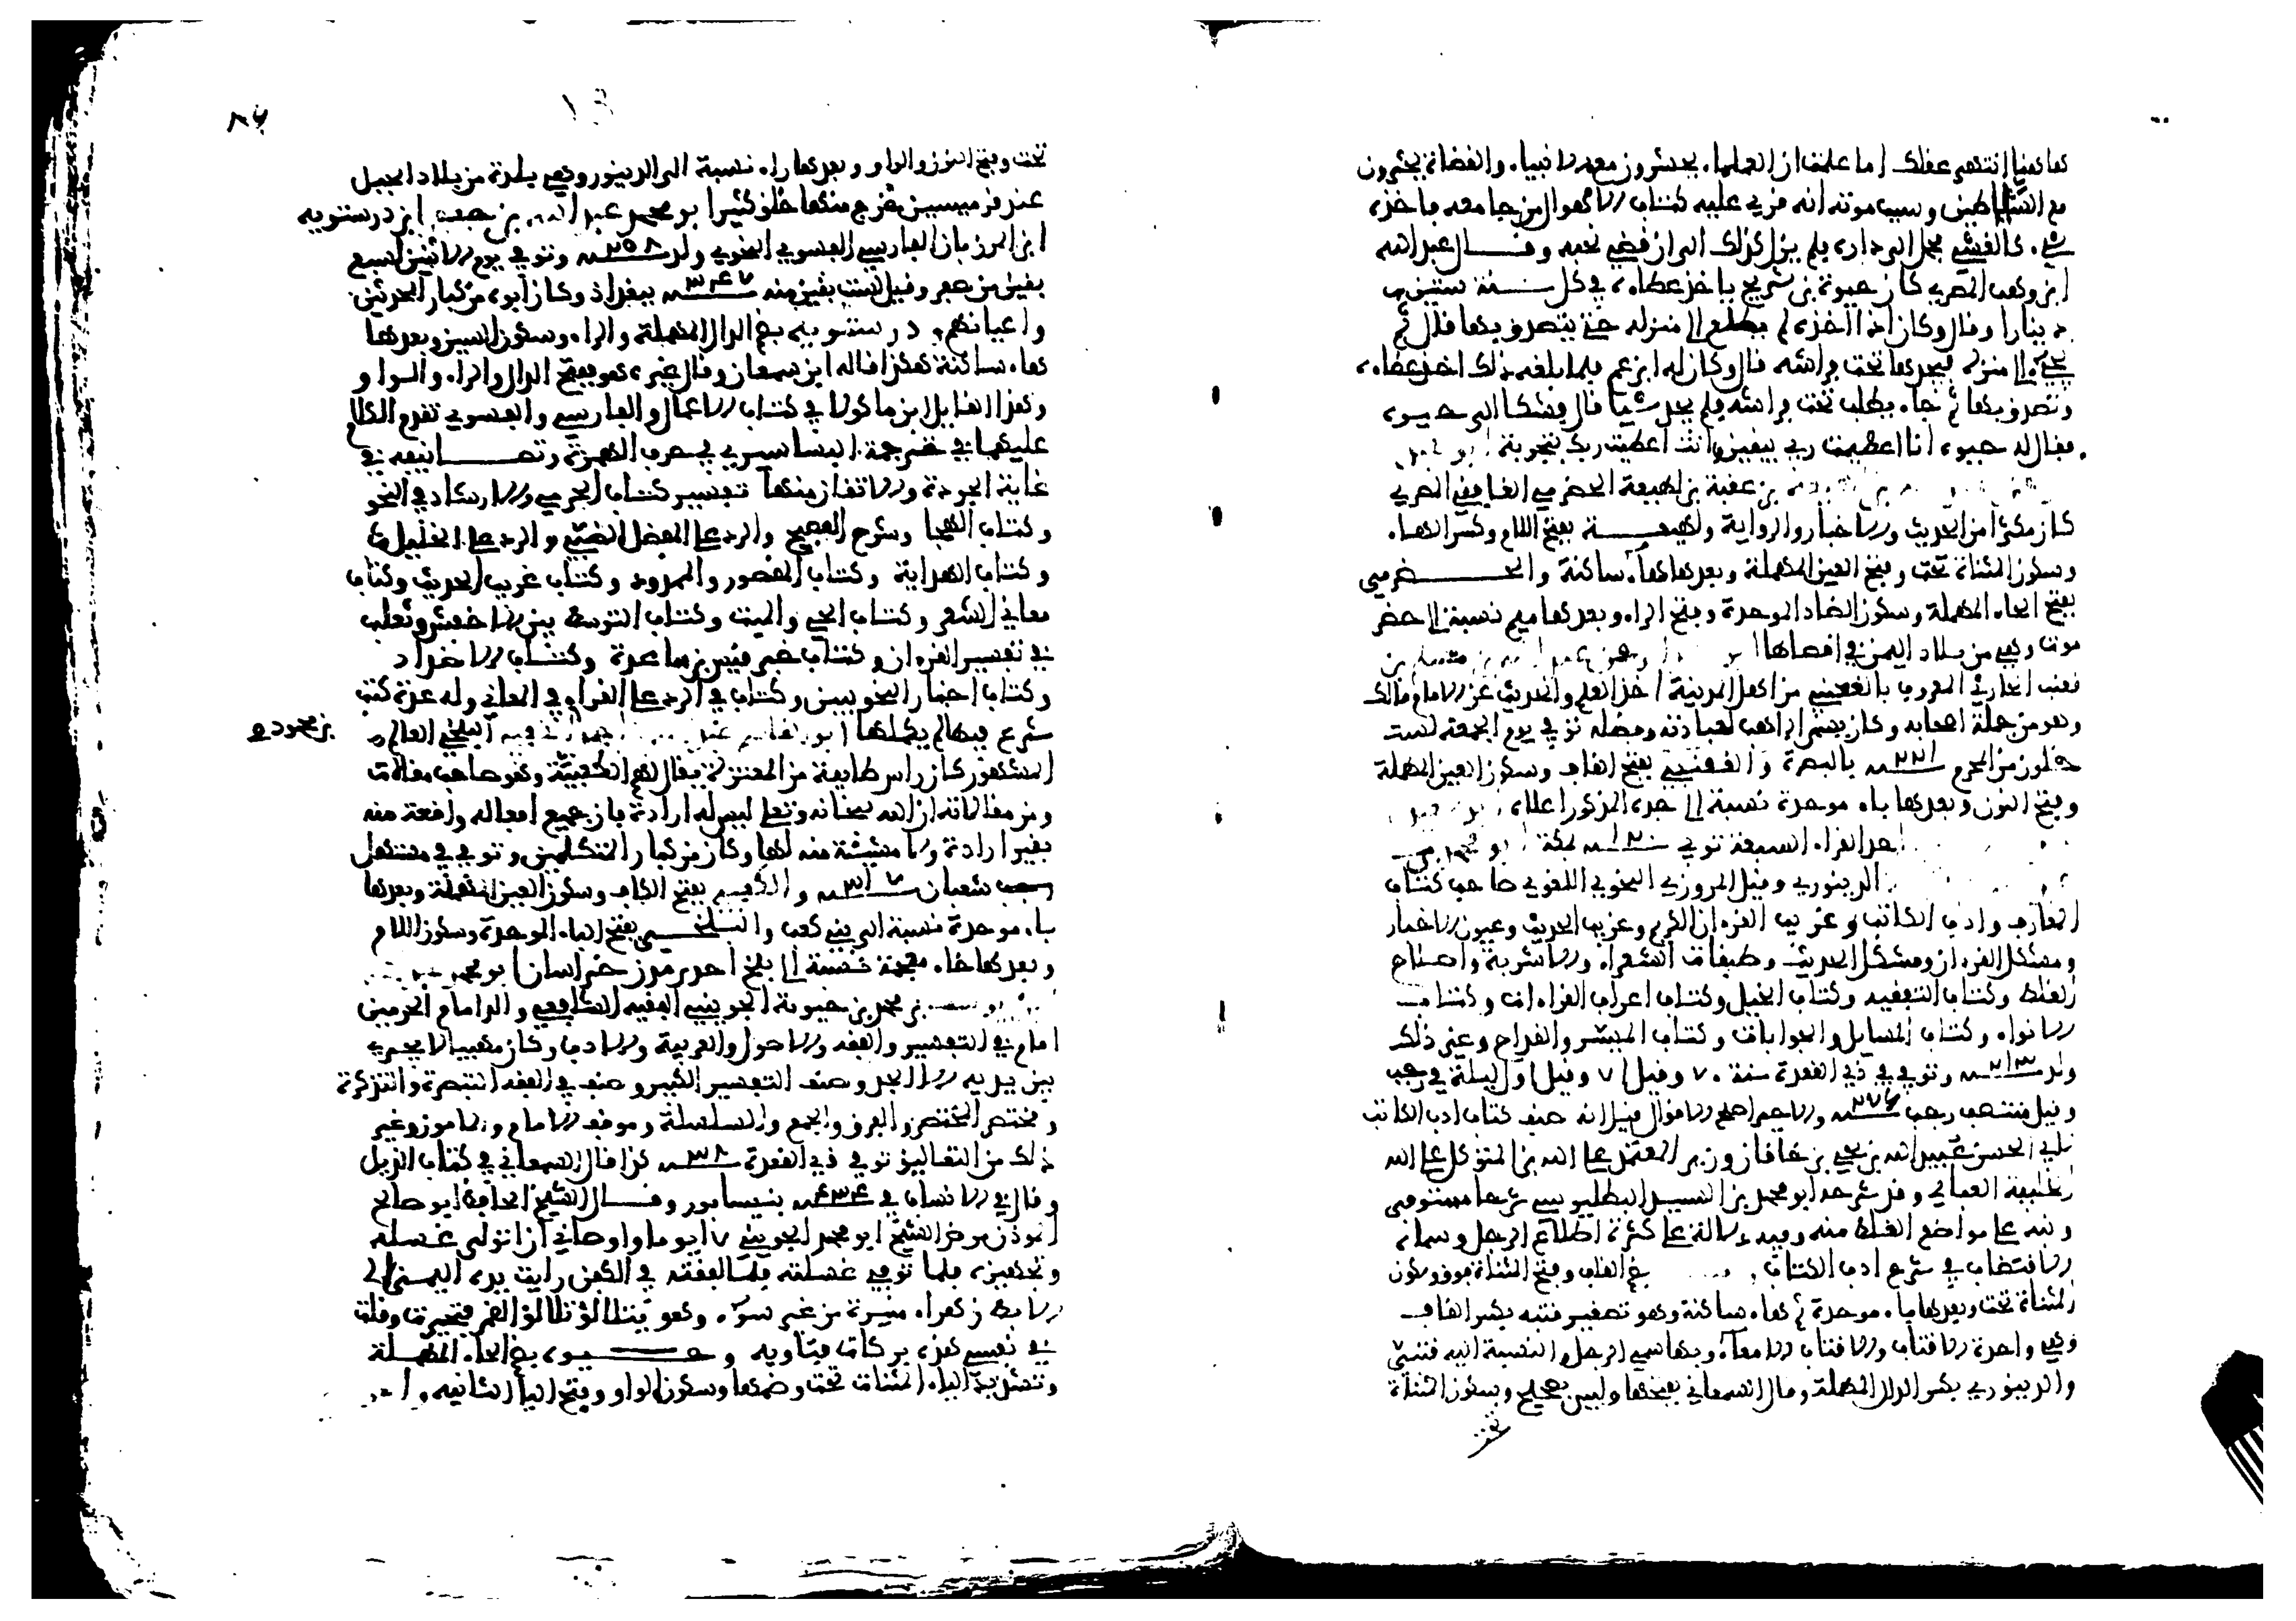 هاهنا انتهى عقلك اما علمت ان العلماء يحشرون مع الانبياء والقضاة يحشرون
مع السلاطين وسبب موته انه قرئ عليه كتاب الاهوال من جامعه فاخذه
شيء كالغشي فحمل الى داره فلم يزل كذلك الى ان قضى نحبه وقال عبد الله
ابن وهب المصري كان حيوة بن شريح ياخذ عطاءه في كل سنة ستين
دينارا وقال وكان اذا اخذه لم يطلع الى منزله حتى يتصدق بها قال ثم
يجيء الى منزله فيجدها تحت فراشه قال وكان له ابن عم فلما بلغه ذلك اخذ عطاءه
وتصدق بها ثم جاء يطلب تحت فراشه فلم يجد شيا قال فشكا الى حيوه
فقال له حيوه انا اعطيت ربي بيقين وانت اعطيت ربك بتجربة
بن عقبة بن لهيعة الحضرمي الغافقي المصري
كان مكثرا من الحديث والاخبار والرواية ولهيعة بفتح اللام وكسر الهاء
وسكون المثناة تحت وفتح العين المهملة وبعدها هاء ساكنة والحضرمي
بفتح الحاء المهملة وسكون الضاد الموحدة وفتح الراء وبعدها ميم نسبة الى حضر
موت وهي من بلاد اليمن في اقصاها
قعنب الحارثي المعروف بالقعنبي من اهل المدينة اخذ العلم والحديث عن الامام مالك
وهو من جملة اصحابه وكان يسمى الراهب لعبادته وفضله توفي يوم الجمعة لست
خلون من المحرم ٢٢١ بالبصرة والقعنبي بفتح القاف وسكون العين المهملة
وفتح النون وبعدها باء موحدة نسبة الى جده المذكور اعلاه
احد القراء السبعة توفي ١٢٠ بمكة
الدينوري وقيل المروزي النحوي اللغوي صاحب كتاب
المعارف وادب الكاتب وغريب القرءان الكريم وغريب الحديث وعيون الاخبار
ومشكل القرءان ومشكل الحديث وطبقات الشعراء والاشربة واصلاح
الغلط وكتاب التفقيه وكتاب الخيل وكتاب اعراب القراءات وكتاب
الانواء وكتاب المسايل والجوابات وكتاب الميسر والقداح وغير ذلك
ولد ٢١٣ وتوفي في ذي القعدة سنة ٧٠ وقيل ٧١ وقيل اول ليلة في رجب
وقيل منتصف رجب ٢٧٦ والاخير اصح الاقوال قيل انه صنف كتاب ادب الكاتب
لابي الحسن عبيد الله بن يحيى بن خاقان وزير المعتمد على الله بن المتوكل على الله
الخليفة العباسي وقد شرحه ابو محمد بن السيد البطليوسي شرحا مستوفى
ونبه على مواضع الغلط منه وفيه دلالة على كثرة اطلاع الرجل وسماه
الاقتضاب في شرح ادب الكتاب بضم القاف وفتح المثناة فوق وسكون
المثناة تحت وبعدها باء موحدة ثم هاء ساكنة وهو تصغير قتبه بكسر القاف
وهي واحدة الاقتاب والاقتاب الامعاء وبها سمي الرجل والنسبة اليه قتبي
والدينوري بكسر الدال المهملة وقال السمعاني بفتحها وليس بصحيح وسكون المثناة
تحت
تحت وفتح النون والواو وبعدها راء نسبة الى الدينور وهي بلدة من بلاد الجبل
عند قرميسين خرج منها خلق كثير ابو محمد عبد الله بن جعفر ابن درستويه
ابن المرزبان الفارسي الفسوي النحوي ولد ٢٥٨ وتوفي يوم الاثنين لتسع
بقين من صفر وقيل لست بقين منه ٣٤٧ ببغداذ وكان ابوه من كبار المحدثين
واعيانهم ودرستويه بضم الدال المهملة والراء وسكون السين وبعدها
هاء ساكنة هكذا قاله ابن سمعان وقال غيره هو بفتح الدال والراء والواو
وهذا القايل ابن ماكولا في كتاب الاكمال والفارسي والفسوي تقدم الكلام
عليهما في ترجمة البساسيري في حرف الهمزة وتصانيفه في
غاية الجودة والاتقان منها تفسير كتاب الجرمي والارشاد في النحو
وكتاب الهجا وشرح الفصيح والرد على المفضل الضبي والرد على الخليل
وكتاب الهداية وكتاب المقصور والممدود وكتاب غريب الحديث وكتاب
معاني الشعر وكتاب الحي والميت وكتاب التوسط بين الاخفش وثعلب
في تفسير القرءان وكتاب خبر قيس بن ساعدة وكتاب الاضداد
وكتاب اخبار النحويين وكتاب في الرد على الفراء في المعاني وله عدة كتب
شرع فيها لم يكملها ابو القاسم البلخي العالم
بن محمود
المشهور كان راس طايفة من المعتزلة يقال لهم الكعبية وهو صاحب مقالات
ومن مقالاته ان الله سبحانه وتعلى ليس له ارادة بان جميع افعاله واقعة منه
بغير ارادة ولا مشيئة منه لها وكان من كبار المتكلمين وتوفي في مستهل
شعبان ٣١٧ والكعبي بفتح الكاف وسكون العين المهملة وبعدها
باء موحدة نسبة الى بني كعب والبلخي بفتح الباء الموحدة وسكون اللام
وبعدها خاء معجمة نسبة الى بلخ احد مدن خراسان ابو محمد
بن محمد بن حيوية الجويني الفقيه الشافعي والد امام الحرمين
امام في التفسير والفقه والاصول والعربية والادب وكان مهيبا لا يجري
بين يديه الا الجد وصنف التفسير الكبير وصنف في الفقه التبصرة والتذكرة
ومختصر المختصر والفرق والجمع والسلسلة وموقف الامام والماموم وغير
ذلك من التعاليق توفي ذي القعدة ٤٣٨ كذا قال السمعاني في كتاب الذيل
وقال في الانساب في ٤٣٤ بنيسابور وقال الشيخ الحافظ ابو صالح
المؤذن مرض الشيخ ابو محمد الجويني ٧ ايوما واوصاني ان اتولى غسله
وتجهيزه فلما توفي غسلته فلما لففته في الكفن رايت يده اليمنى الى
الابط زهراء منيرة من غير سوء وهو يتلالؤ تلالؤ القمر فتحيرت وقلت
في نفسي هذه بركات فتاويه وحيويه بفتح الحاء المهملة
وتشديد الياء المثناة تحت وضمها وسكون الواو وفتح اليا الثانيه